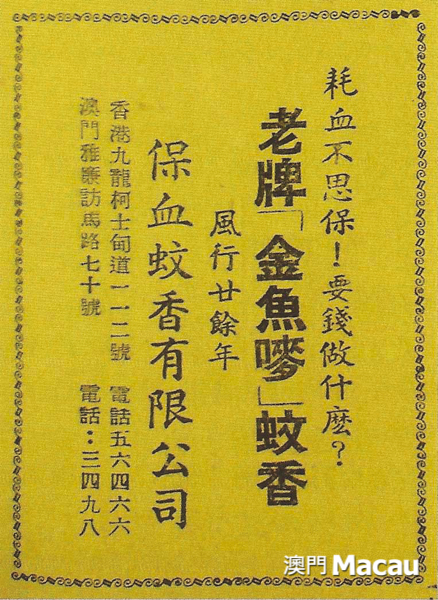 耗血不思保！要錢做什麽？
老牌「金魚嘜」蚊香
風行廿餘年
保血蚊香有限公司
香港九龍柯士甸道一一二號 電話五六四六六
澳門雅廉訪馬路七十號 電話：三四九八
澳門 Macau